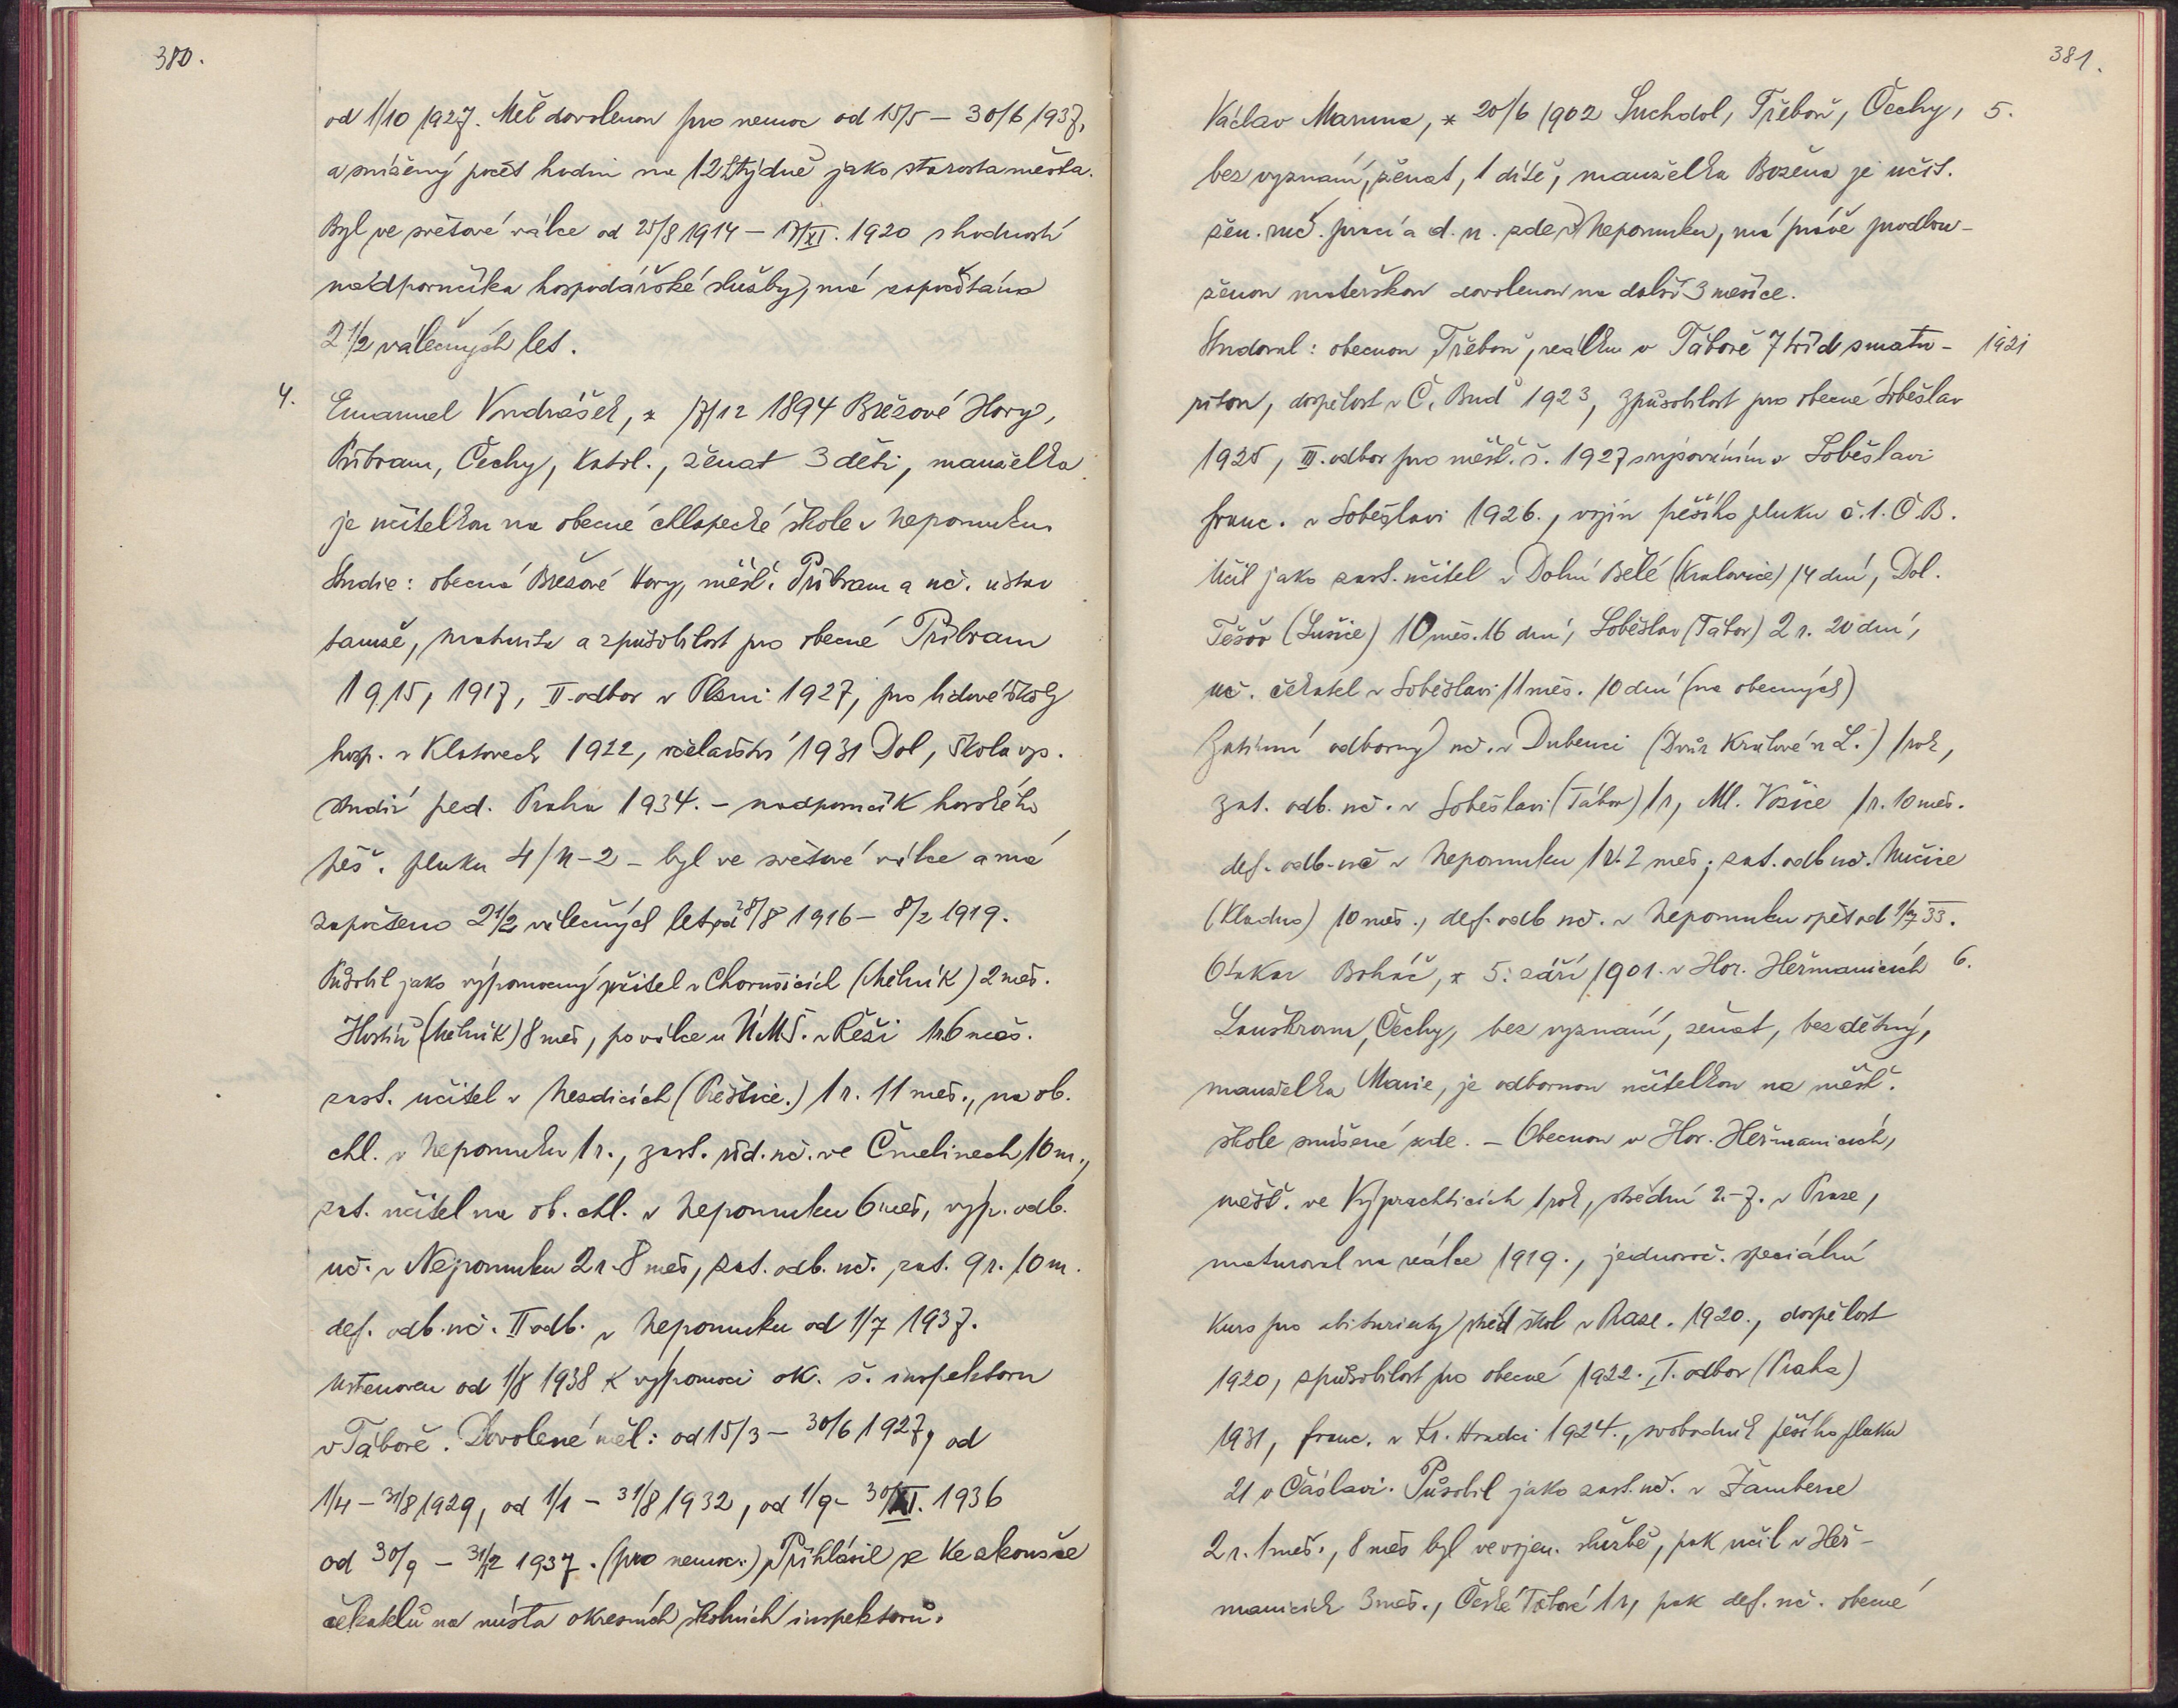 380.
od 1/10 1927. Měl dovolenou pro nemoc od 15/5 – 30/6 1937,
a snížený počet hodin na 12 týdně jako starosta města.
Byl ve světové válce od 25/8 1914 – /XI. 1920 s hodností
nadporučíka hospodářské služby, má započítána
2 1/2 válečných let.
4. Emanuel Vondrášek, * 17/12 1894 Březové Hory,
Příbram, Čechy, katol., ženat 3 děti, manželka
je učitelkou na obecné chlapecké škole v Nepomuku.
Studie: obecná Březové Hory, měšť. Příbram a uč. ústav
tamže, maturita a způsobilost pro obecné Příbram
1915, 1917, II. odbor v Plzni 1927, pro lidové školy
hosp. v Klatovech 1922, včelařství 1931 Dol, škola vys.
studií ped. Praha 1934. – nadporučík horského
pěš. pluku 4/II-2 – byl ve světové válce a má
započteno 2 1/2 válečných let od 28/8 1916 – 8/2 1919.
Působil jako výpomocný učitel v Chorušicích (Mělník) 2 měs.
Hostín (Mělník) 8 měs, po válce u ÚMŠ. v Řeši 1r. 6 měs.
zast. učitel v Nezdicích (Přeštice.) 1 r. 11 měs., na ob.
chl. v Nepomuku 1 r., zast. říd. uč. ve Čmelínech 10 m.,
zat. učitel na ob. chl. v Nepomuku 6 měs, výp. odb.
uč. v Nepomuku 2 r. 8 měs, zat. odb. uč. zat. 9 r. 10 m.
def. odb. uč. II odb. v Nepomuku od 1/7 1937.
Ustanoven od 1/8 1938 k výpomoci ok. š. inspektoru
v Táboře. Dovolené měl: od 15/3 – 30/6 1927, od
1/4 – 31/8 1929, od 1/1 – 31/8 1932, od 1/9 – 30/XI. 1936
od 30/9 – 31/12 1937. (pro nemoc.) Přihlásil se ke zkoušce
čekatelů na místa okresních školních inspektorů.
381.
Václav Maruna, * 20/6 1902 Suchdol, Třeboň, Čechy, 5.
bez vyznání, ženat, 1 dítě, manželka Božena je učit.
žen. ruč. prací a d. n. zde v Nepomuku, má právě prodlou-
ženou mateřskou dovolenou na další 3 měsíce.
Studoval: obecnou Třeboň, reálku v Táboře 7 tříd s matu- 1921
ritou, dospělost v Č. Bud 1923, způsobilost pro obecné Soběslav
1925, III. odbor pro měšť. š. 1927 s rýsováním v Soběslavi
franc. v Soběslavi 1926., vojín pěšího pluku č. 1. Č B.
Učil jako zast. učitel v Dolní Bělé (Kralovice) 14 dní, Dol.
Těšov (Sušice) 10 měs. 16 dní, Soběslav (Tábor) 2 r. 20 dní,
uč. čekatel v Soběslavi 11 měs. 10 dní (na obecných)
Zatímní odborný uč. v Dubenci (Dvůr Králové n L.) 1 rok,
zat. odb. uč. v Soběslavi (Tábor) 1 r, Ml. Vožice 1 r. 10 měs.
def. odb. uč v Nepomuku 1 r. 2 měs; zat. odb uč. Nučice
(Kladno) 10 měs., def. odb uč. v Nepomuku opět od 1/7 33.
Otakar Boháč, * 5. září 1901. v Hor. Heřmanicích 6.
Lanškroun, Čechy, bez vyznání, ženat, bezdětný,
manželka Marie, je odbornou učitelkou na měšť.
škole smíšené zde. – Obecnou v Hor. Heřmanicích,
měšť. ve Výprachticích 1 rok, střední 2.–7. v Praze,
maturoval na reálce 1919., jednoroč. speciální
kurs pro abiturienty střed škol v Praze. 1920., dospělost
1920, způsobilost pro obecné 1922. I. odbor (Praha)
1931, franc. v Kr. Hradci 1924., svobodník pěšího pluku
21 v Čáslavi. Působil jako zast. uč. v Žamberce
2 r. 1 měs., 8 měs byl ve vojen. službě, pak učil v Heř-
manicích 3 měs., České Třebové 1 r, pak def. uč. obecné